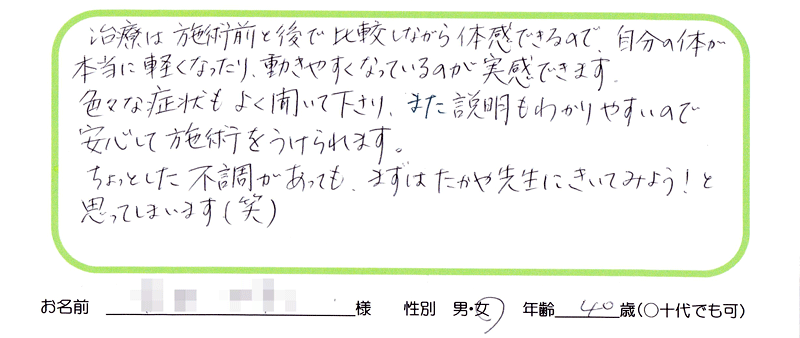 治療は施術前と後で比較しながら体感できるので、自分の体が
本当に軽くなったり、動きやすくなっているのが実感できます。
色々な症状もよく聞いて下さり、また説明もわかりやすいので
安心して施術をうけられます。
ちょっとした不調があっても、まずはたかや先生にきいてみよう!と
思ってしまいます(笑)
お名前 様 性別 男・女 年齢 40 歳(○十代でも可)